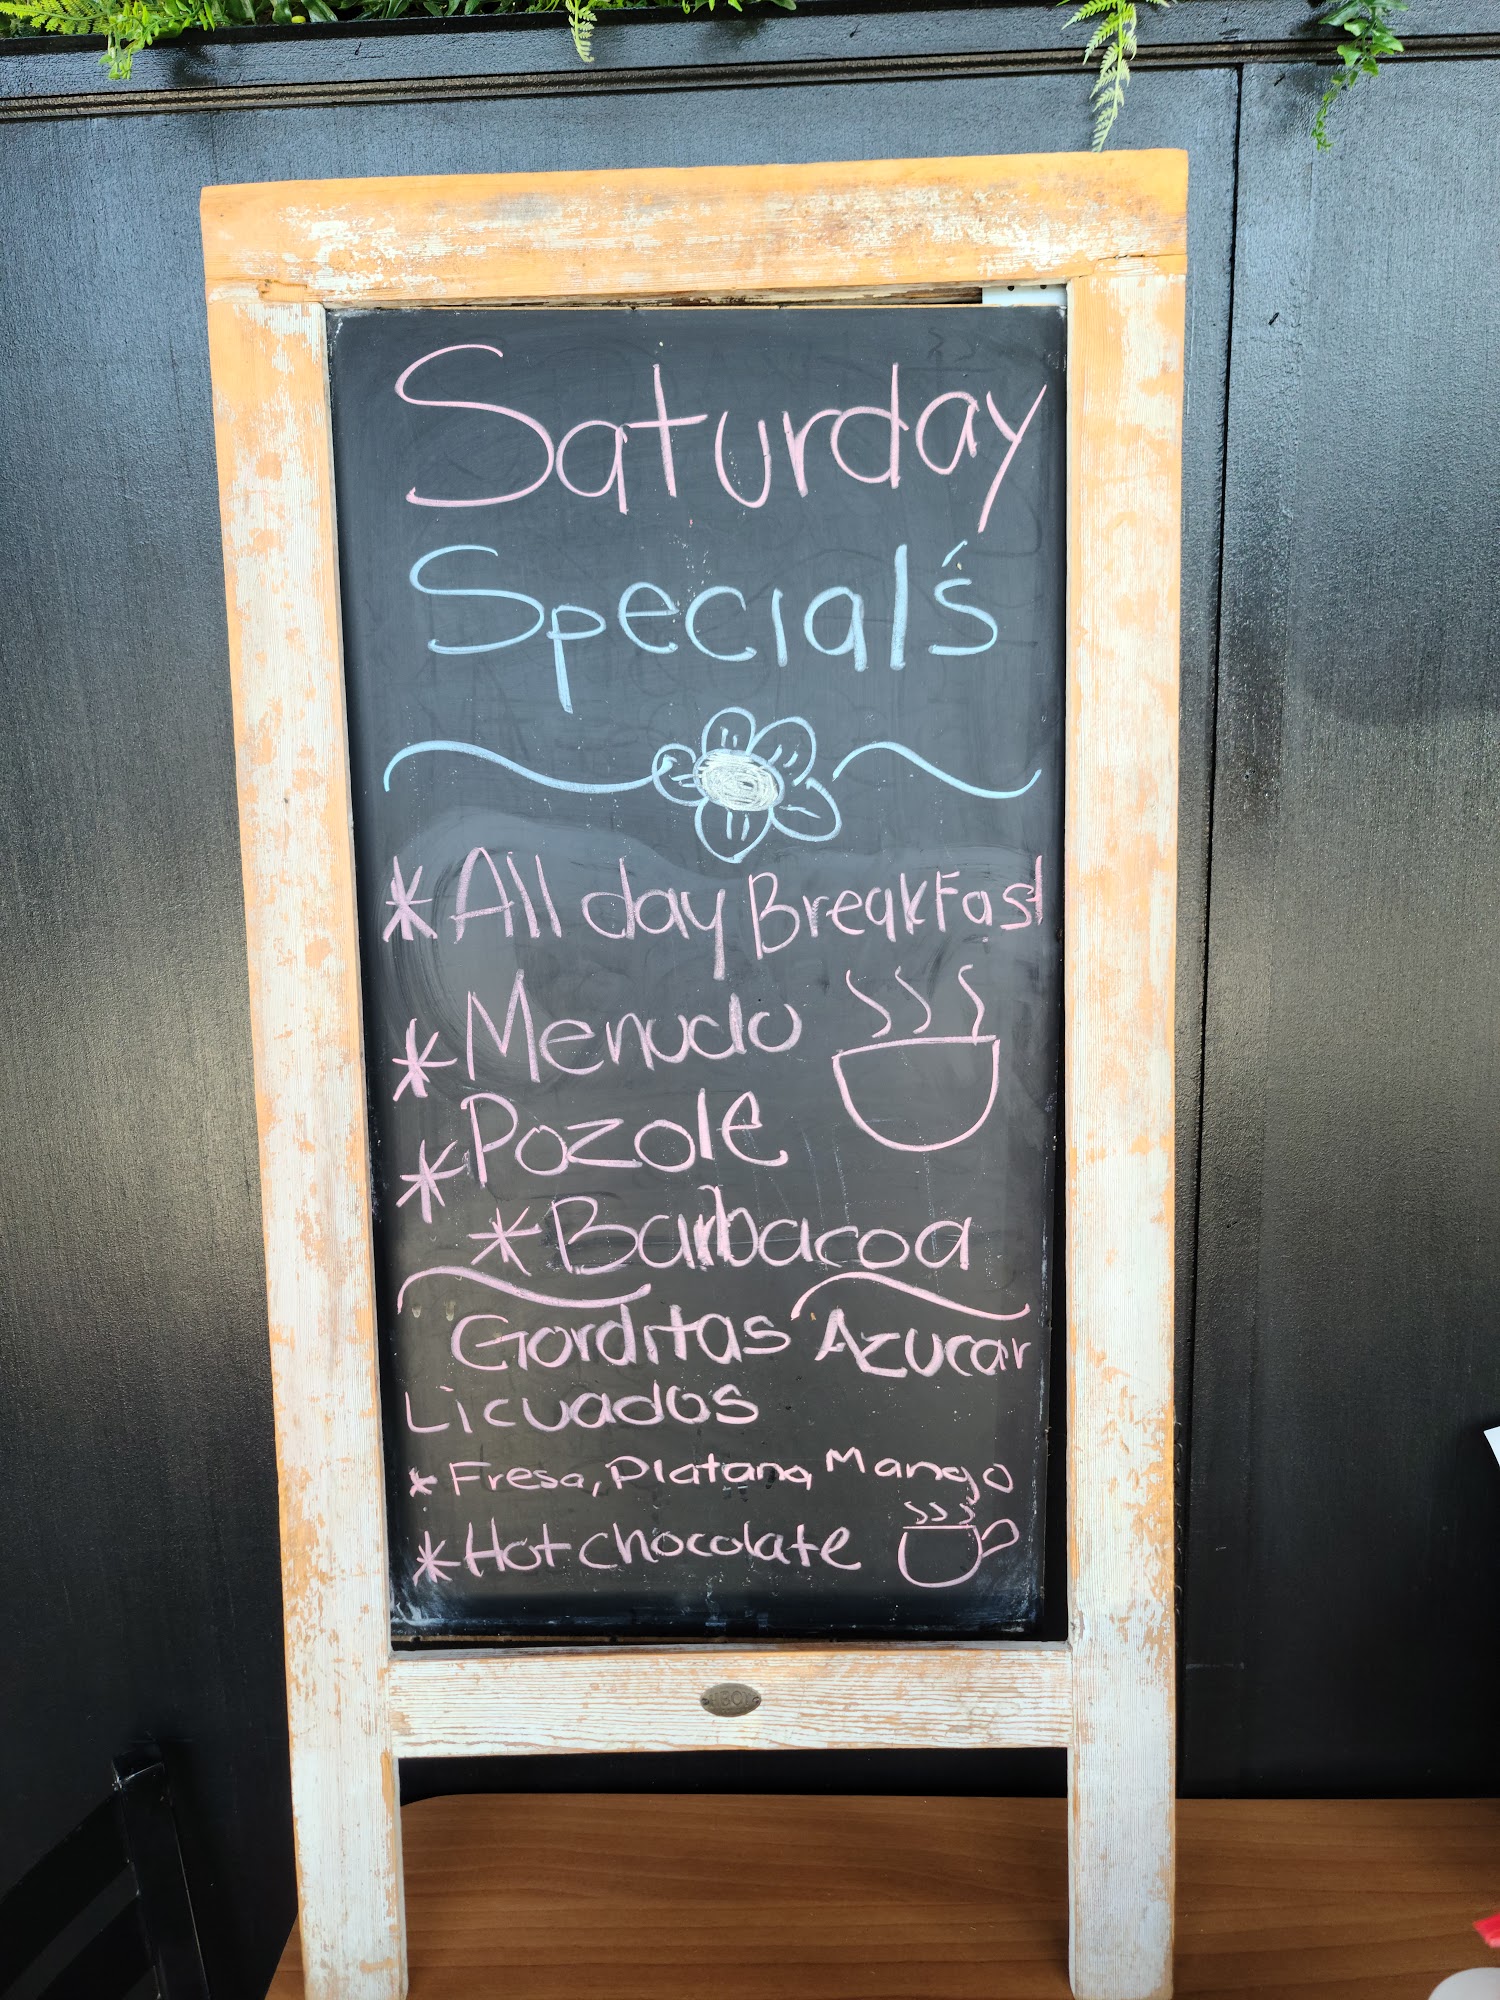 Saturday
Special's
* All day BreakFast
* Menudo
* Pozole
* Barbacoa
Gorditas Azucar
Licuados
* Fresa, Platano, Mango
* Hot chocolate